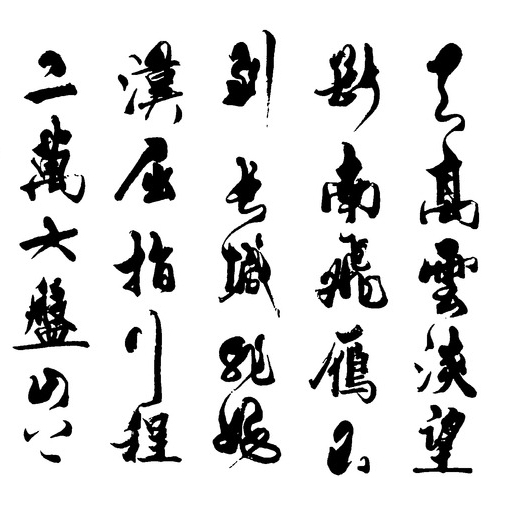 天高雲淡望
斷南飛鴈不
到長城非好
漢屈指行程
二萬六盤山上